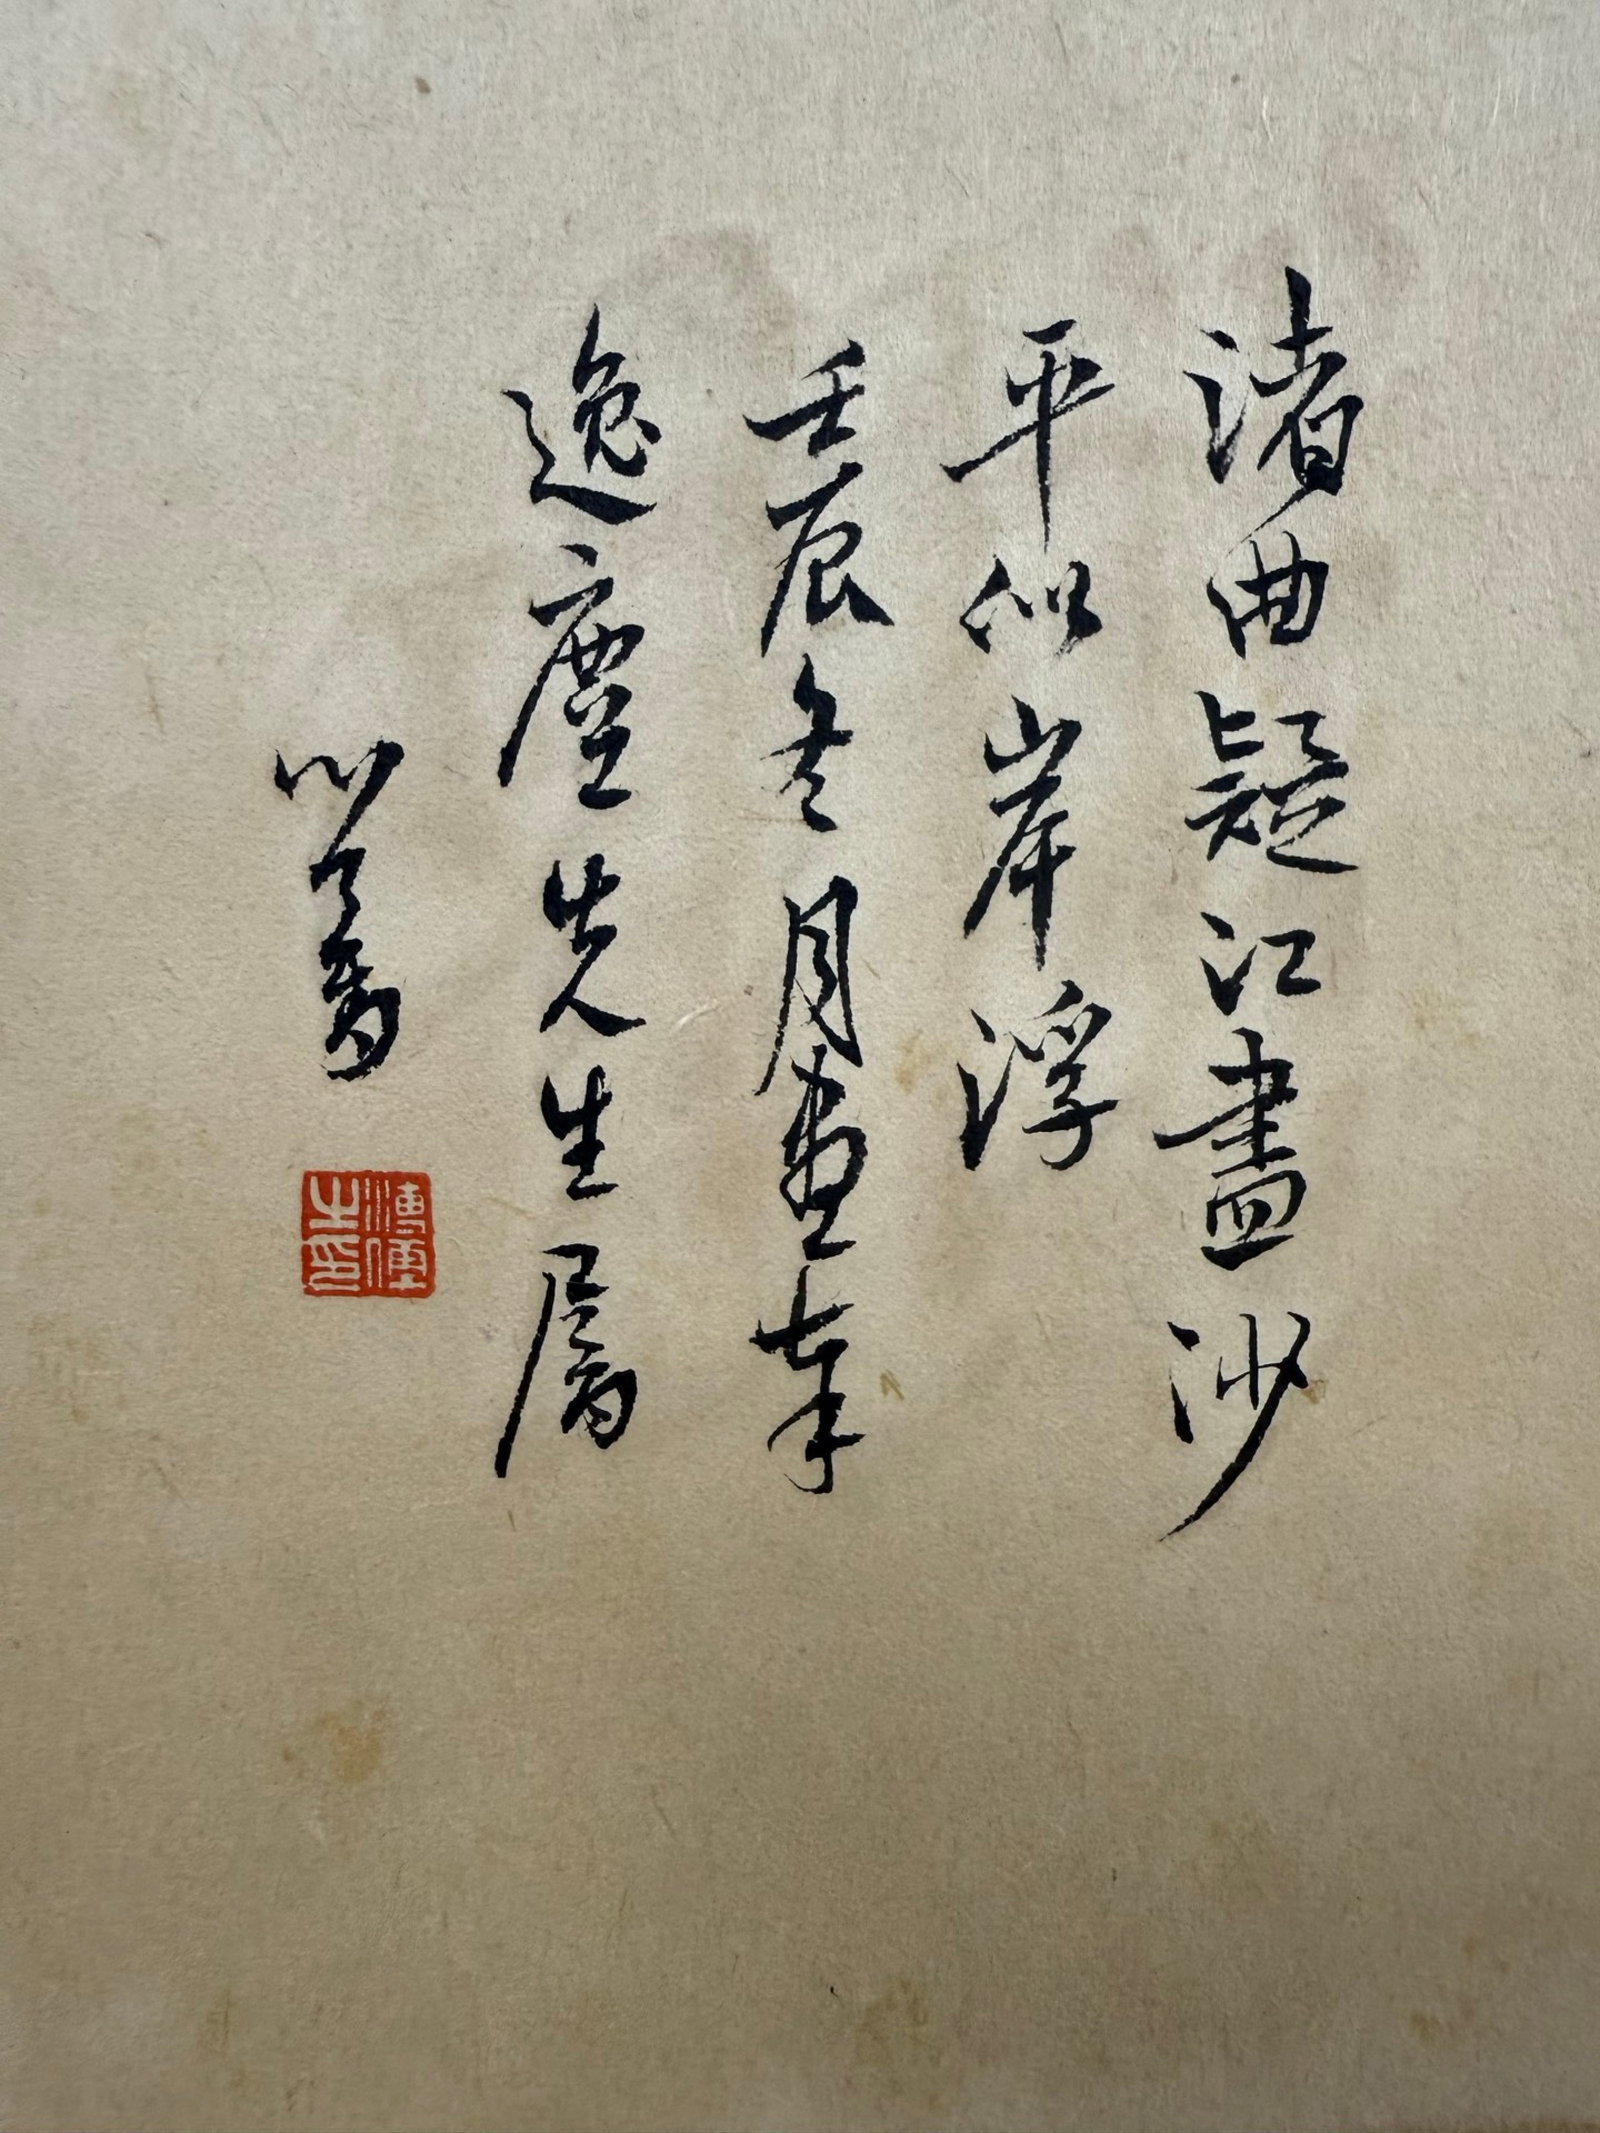 渚曲疑江盡沙
平似岸浮
壬辰冬月畫奉
逸塵先生屬
心畬
溥儒
之印